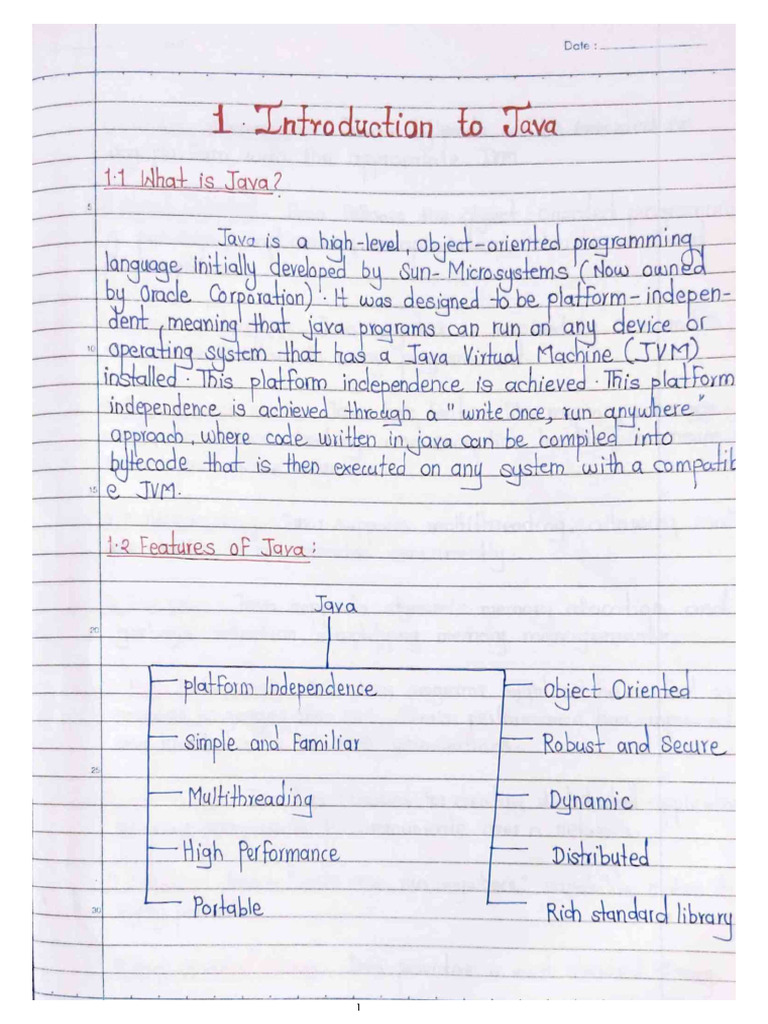 Date :
1. Introduction to Java
1.1 What is Java?
5
Java is a high-level, object-oriented programming
language initially developed by Sun-Microsystems (Now owned
by Oracle Corporation). It was designed to be platform-indepen-
dent, meaning that java programs can run on any device or
10
operating system that has a Java Virtual Machine (JVM)
installed. This platform independence is achieved. This platform
independence is achieved through a "write once, run anywhere"
approach, where code written in java can be compiled into
bytecode that is then executed on any system with a compatib
15
e JVM.
1.2 Features of Java:
Java
20
platform Independence
Object Oriented
Simple and Familiar
Robust and Secure
25
Multithreading
Dynamic
High Performance
Distributed
30
Portable
Rich standard library
1